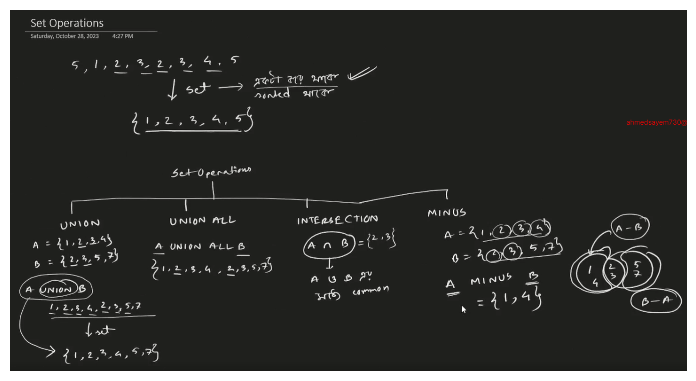 Set Operations
Saturday, October 28, 2023 4:27 PM
5, 1, 2, 3, 2, 3, 4, 5
set → একটা করে থাকবে
sorted থাকবে
{1, 2, 3, 4, 5}
Set Operations
UNION
A = {1, 2, 3, 4}
B = {2, 3, 5, 7}
A UNION B
1, 2, 3, 4, 2, 3, 5, 7
set
{1, 2, 3, 4, 5, 7}
UNION ALL
A UNION ALL B
{1, 2, 3, 4, 2, 3, 5, 7}
INTERSECTION
A ∩ B = {2, 3}
A B এর
মধ্যে common
MINUS
A = {1, 2, 3, 4}
B = {2, 3, 5, 7}
A MINUS B
= {1, 4}
A-B
1 2 5
4 3 7
B-A